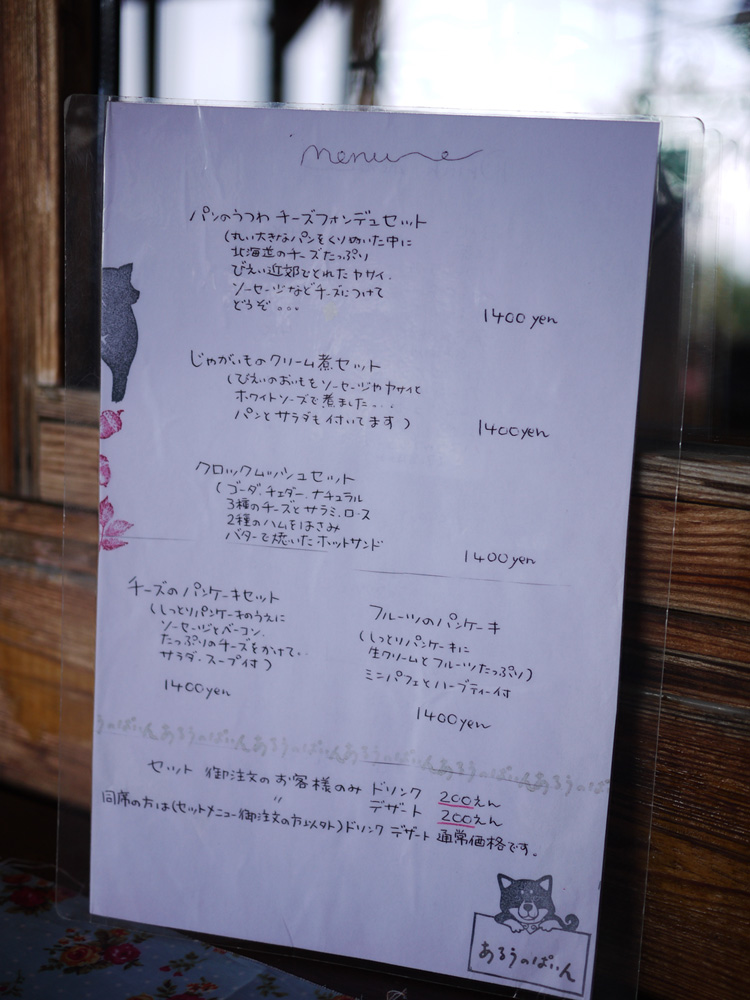 menu
パンのうつわ チーズフォンデュセット
(丸い大きなパンをくりぬいた中に
北海道のチーズたっぷり
びえい近郊でとれたヤサイ、
ソーセージなどチーズにつけて
どうぞ。。。
1400 yen
じゃがいものクリーム煮セット
(びえいのおいもをソーセージやヤサイと
ホワイトソースで煮ました...
パンとサラダも付いてます)
1400yen
クロックムッシュセット
(ゴーダ.チェダー.ナチュラル
3種のチーズとサラミ.ロース
2種のハムをはさみ
バターで焼いたホットサンド
1400yen
チーズのパンケーキセット
(しっとりパンケーキのうえに
ソーセージとベーコン.
たっぷりのチーズをかけて..
サラダ.スープ付)
1400yen
フルーツのパンケーキ
(しっとりパンケーキに
生クリームとフルーツたっぷり)
ミニパフェとハーブティー付
1400yen
あろうのぱいんあろうのぱいんあろうのぱいんあろうのぱいんあろうのぱ
セット 御注文のお客様のみ ドリンク 200えん
〃 デザート 200えん
同席の方は(セットメニュー御注文の方以外)ドリンク デザート 通常価格です。
あろうのぱいん